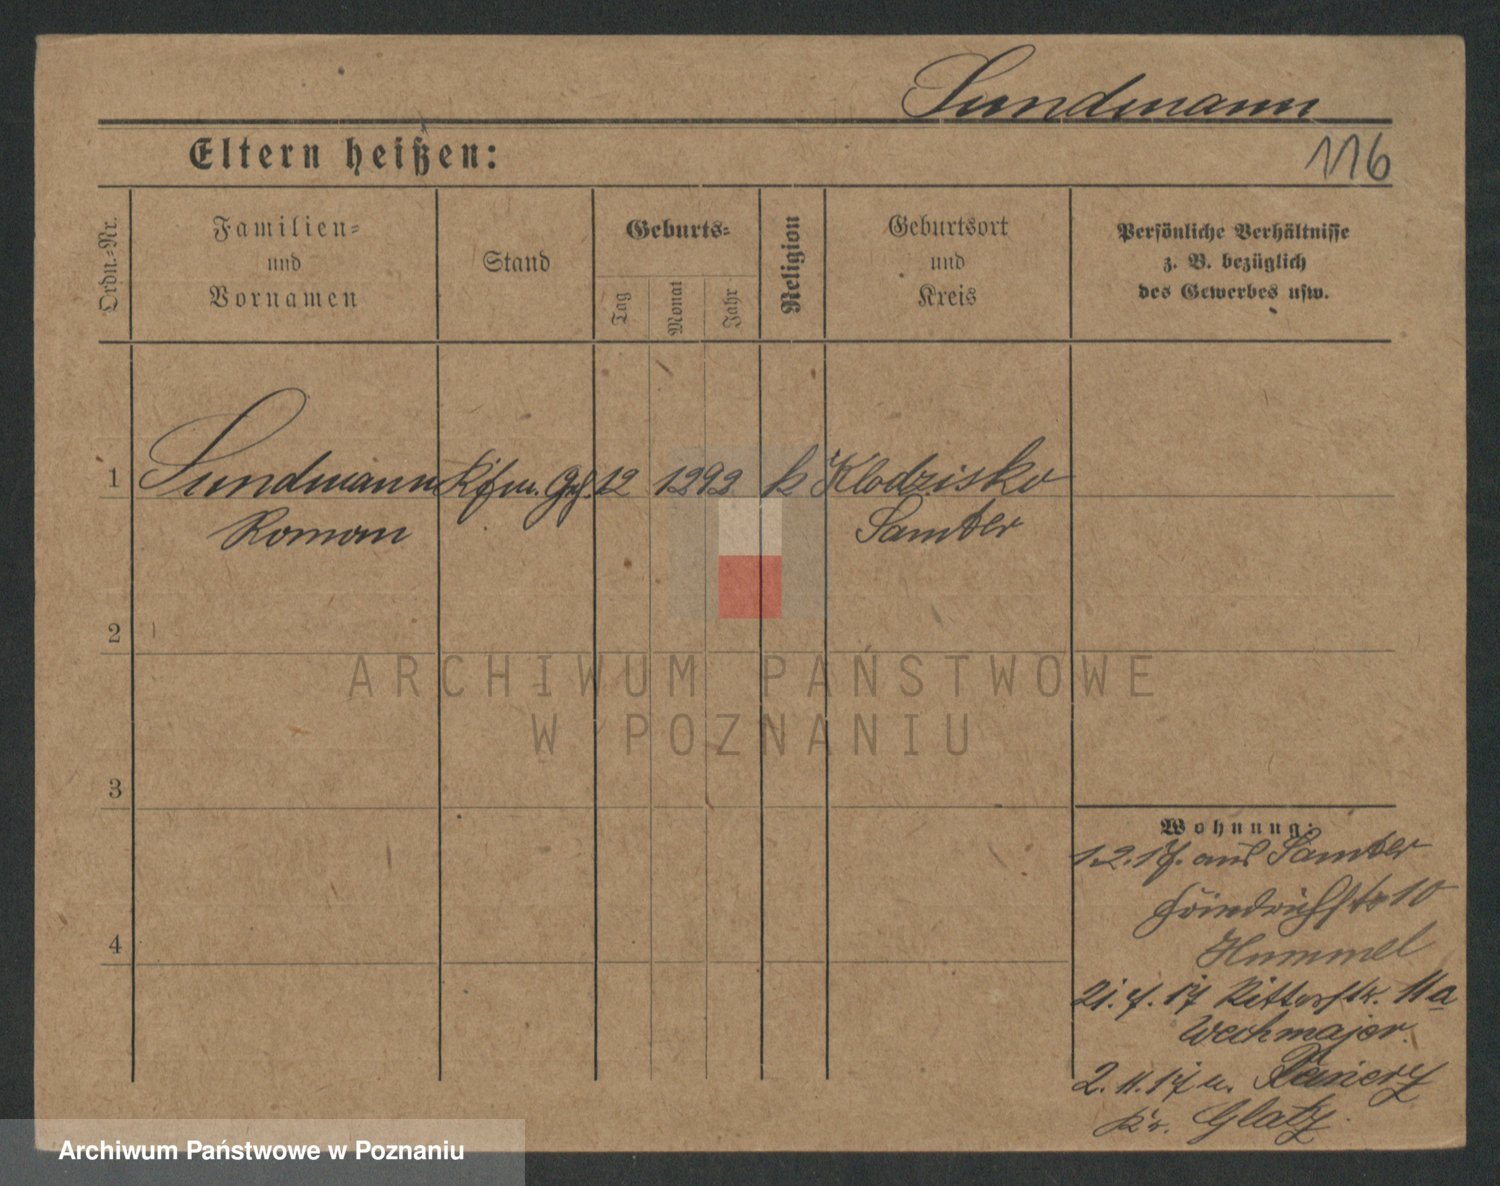 Sundmann
Eltern heißen:
116
Ordn.-Nr.
Familien-
und
Vornamen
Stand
Geburts-
Tag
Monat
Jahr
Religion
Geburtsort
und
Kreis
Persönliche Verhältnisse
z. B. bezüglich
des Gewerbes usw.
1 Sundmann Kfm. 12 12 92 k Klodzisko
Roman Samter
2
3
4
ARCHIWUM PAŃSTWOWE
W POZNANIU
Wohnung:
1.2.17. aus Samter
Friedrichstr 10
Hummel
21. 17 Ritterstr. 11a
Wechmajer.
2.11.17 n.
Kr. Glatz.
Archiwum Państwowe w Poznaniu